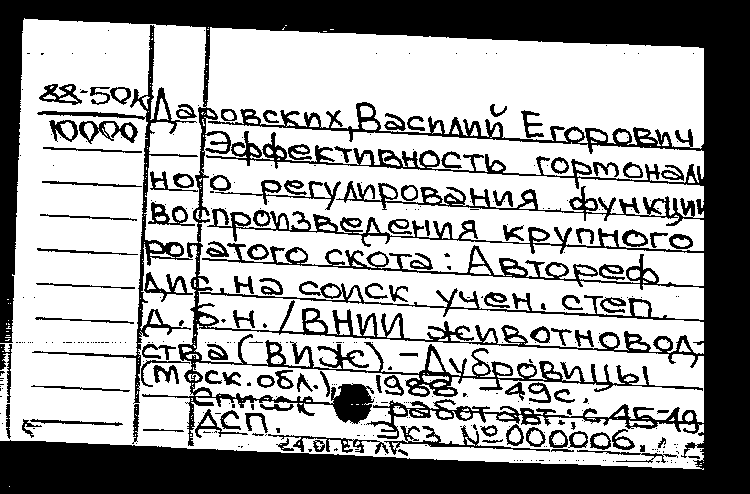 88-50к
10000
Даровских, Василий Егорович.
Эффективность гормональ
ного регулирования функции
воспроизведения крупного
рогатого скота: Автореф.
дис. на соиск. учен. степ.
д. б. н. / ВНИИ животновод-
ства (ВИЖ). - Дубровицы
(Моск. обл.), 1988. - 49с.
Список работ авт.: с. 45-49
ДСП. Экз. № 000006.
24.01.89 ЛК